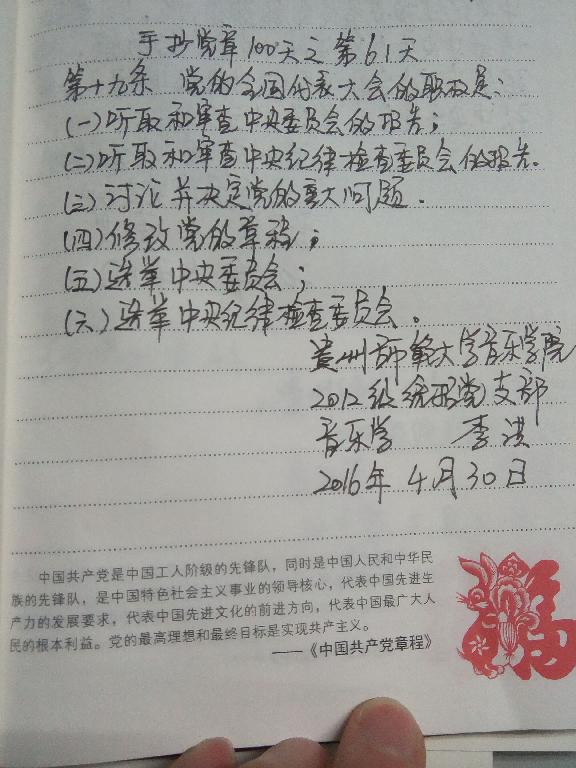 手抄党章100天之第61天
第十九条 党的全国代表大会的职权是:
(一)听取和审查中央委员会的报告;
(二)听取和审查中央纪律检查委员会的报告.
(三)讨论并决定党的重大问题.
(四)修改党的章程;
(五)选举中央委员会;
(六)选举中央纪律检查委员会。
贵州师范大学音乐学院
2012级统招党支部
音乐学 李洪
2016年4月30日
中国共产党是中国工人阶级的先锋队，同时是中国人民和中华民
族的先锋队，是中国特色社会主义事业的领导核心，代表中国先进生
产力的发展要求，代表中国先进文化的前进方向，代表中国最广大人
民的根本利益。党的最高理想和最终目标是实现共产主义。
——《中国共产党章程》
福